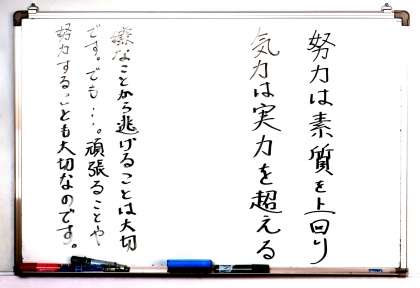 努力は素質を上回り
気力は実力を超える
嫌なことから逃げることは大切
です。でも…。頑張ることや
努力することも大切なのです。